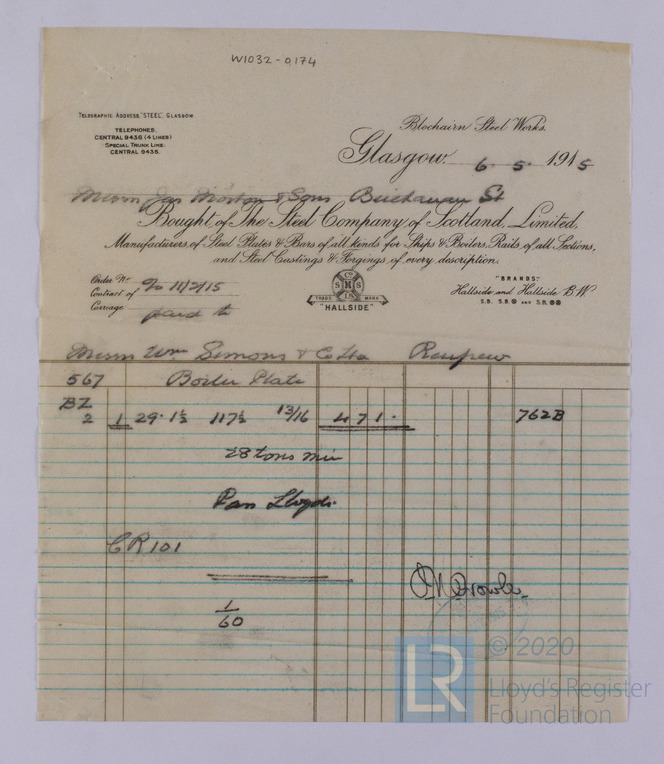 W1032-0174
TELEGRAPHIC ADDRESS, "STEEL", GLASGOW
TELEPHONES,
CENTRAL 9436 (4 LINES)
SPECIAL TRUNK LINE.
CENTRAL 9435.
Blochairn Steel Works.
Glasgow. 6. 5. 1915
Messrs Jas Morton & Sons Buchanan St
Bought of The Steel Company of Scotland, Limited,
Manufacturers, of Steel Plates & Bars of all kinds for Ships & Boilers, Rails, of all Sections,
and Steel Castings & Forgings, of every description.
Order No
Contract of 11/2/15
Carriage paid to
Co
S M S
LD
TRADE MARK
"HALLSIDE"
"BRANDS".
Hallside and Hallside B.W.
S.B. S.B. AND S.B.
Messrs Wm Simons & Co Ltd Renfrew
567 Boiler Plate
BZ
2 1 29.1½ 117½ 13/16 471. 762B
28 tons min
Pass Lloyds.
CR101
1/60
LR
© 2020
Lloyd's Register
Foundation